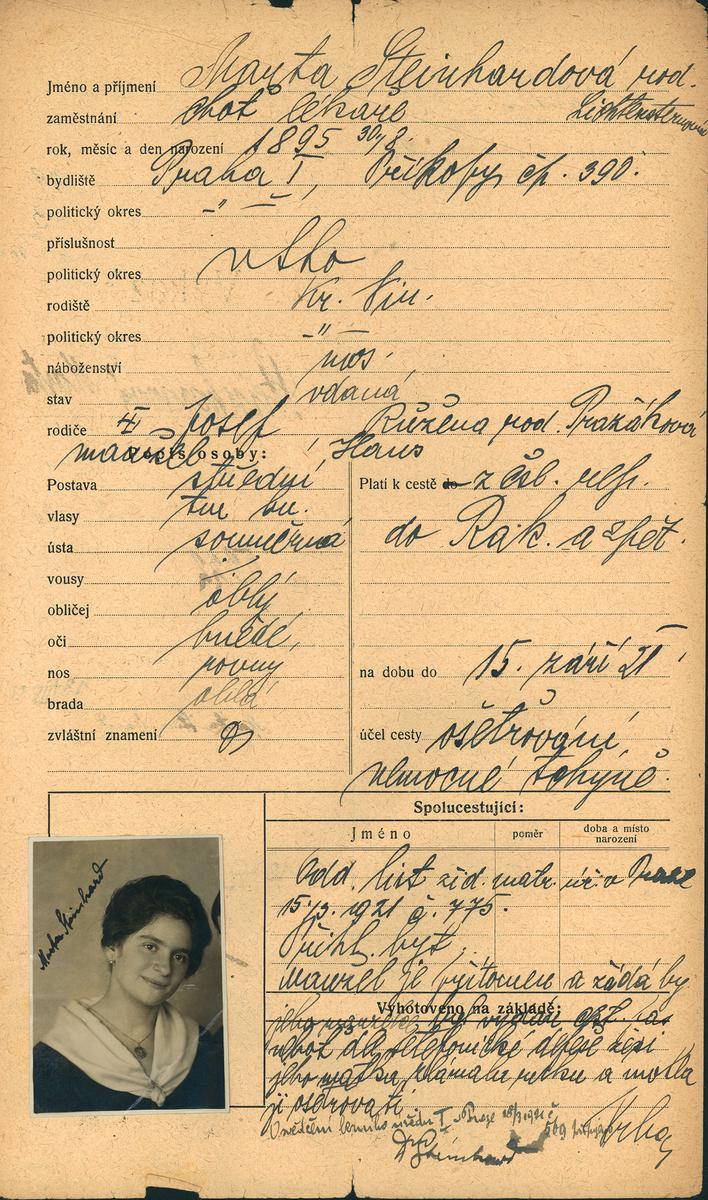 Jméno a příjmení Marta Steinhardová rod.
zaměstnání choť lékaře
rok, měsíc a den narození 1895 30/8.
bydliště Praha I, Příkopy čp. 390.
politický okres -"-
příslušnost
politický okres
rodiště Kr. Vin.
politický okres -"-
náboženství mos.
stav vdaná
rodiče Josef Růžena rod. Pražáková
manžel Hans
Popis osoby:
Postava střední
vlasy tm. hn.
ústa souměrná
vousy
obličej oblý
oči hnědé
nos rovný
brada oblá
zvláštní znamení
Platí k cestě do z čsl. rep.
do Rak. a zpět.
na dobu do 15. září 21
účel cesty ošetřování
nemocné tchyně.
Spolucestující:
Jméno poměr doba a místo narození
Marta Steinhard
Odd. list žid. matr. úř. v Praze
15/3. 1921 č. 775.
Přihl. byt.
manžel je přítomen a žádá by
Vyhotoveno na základě:
jeho matka zlámala nohu a
ji ošetrovati.
Dr Steinhard